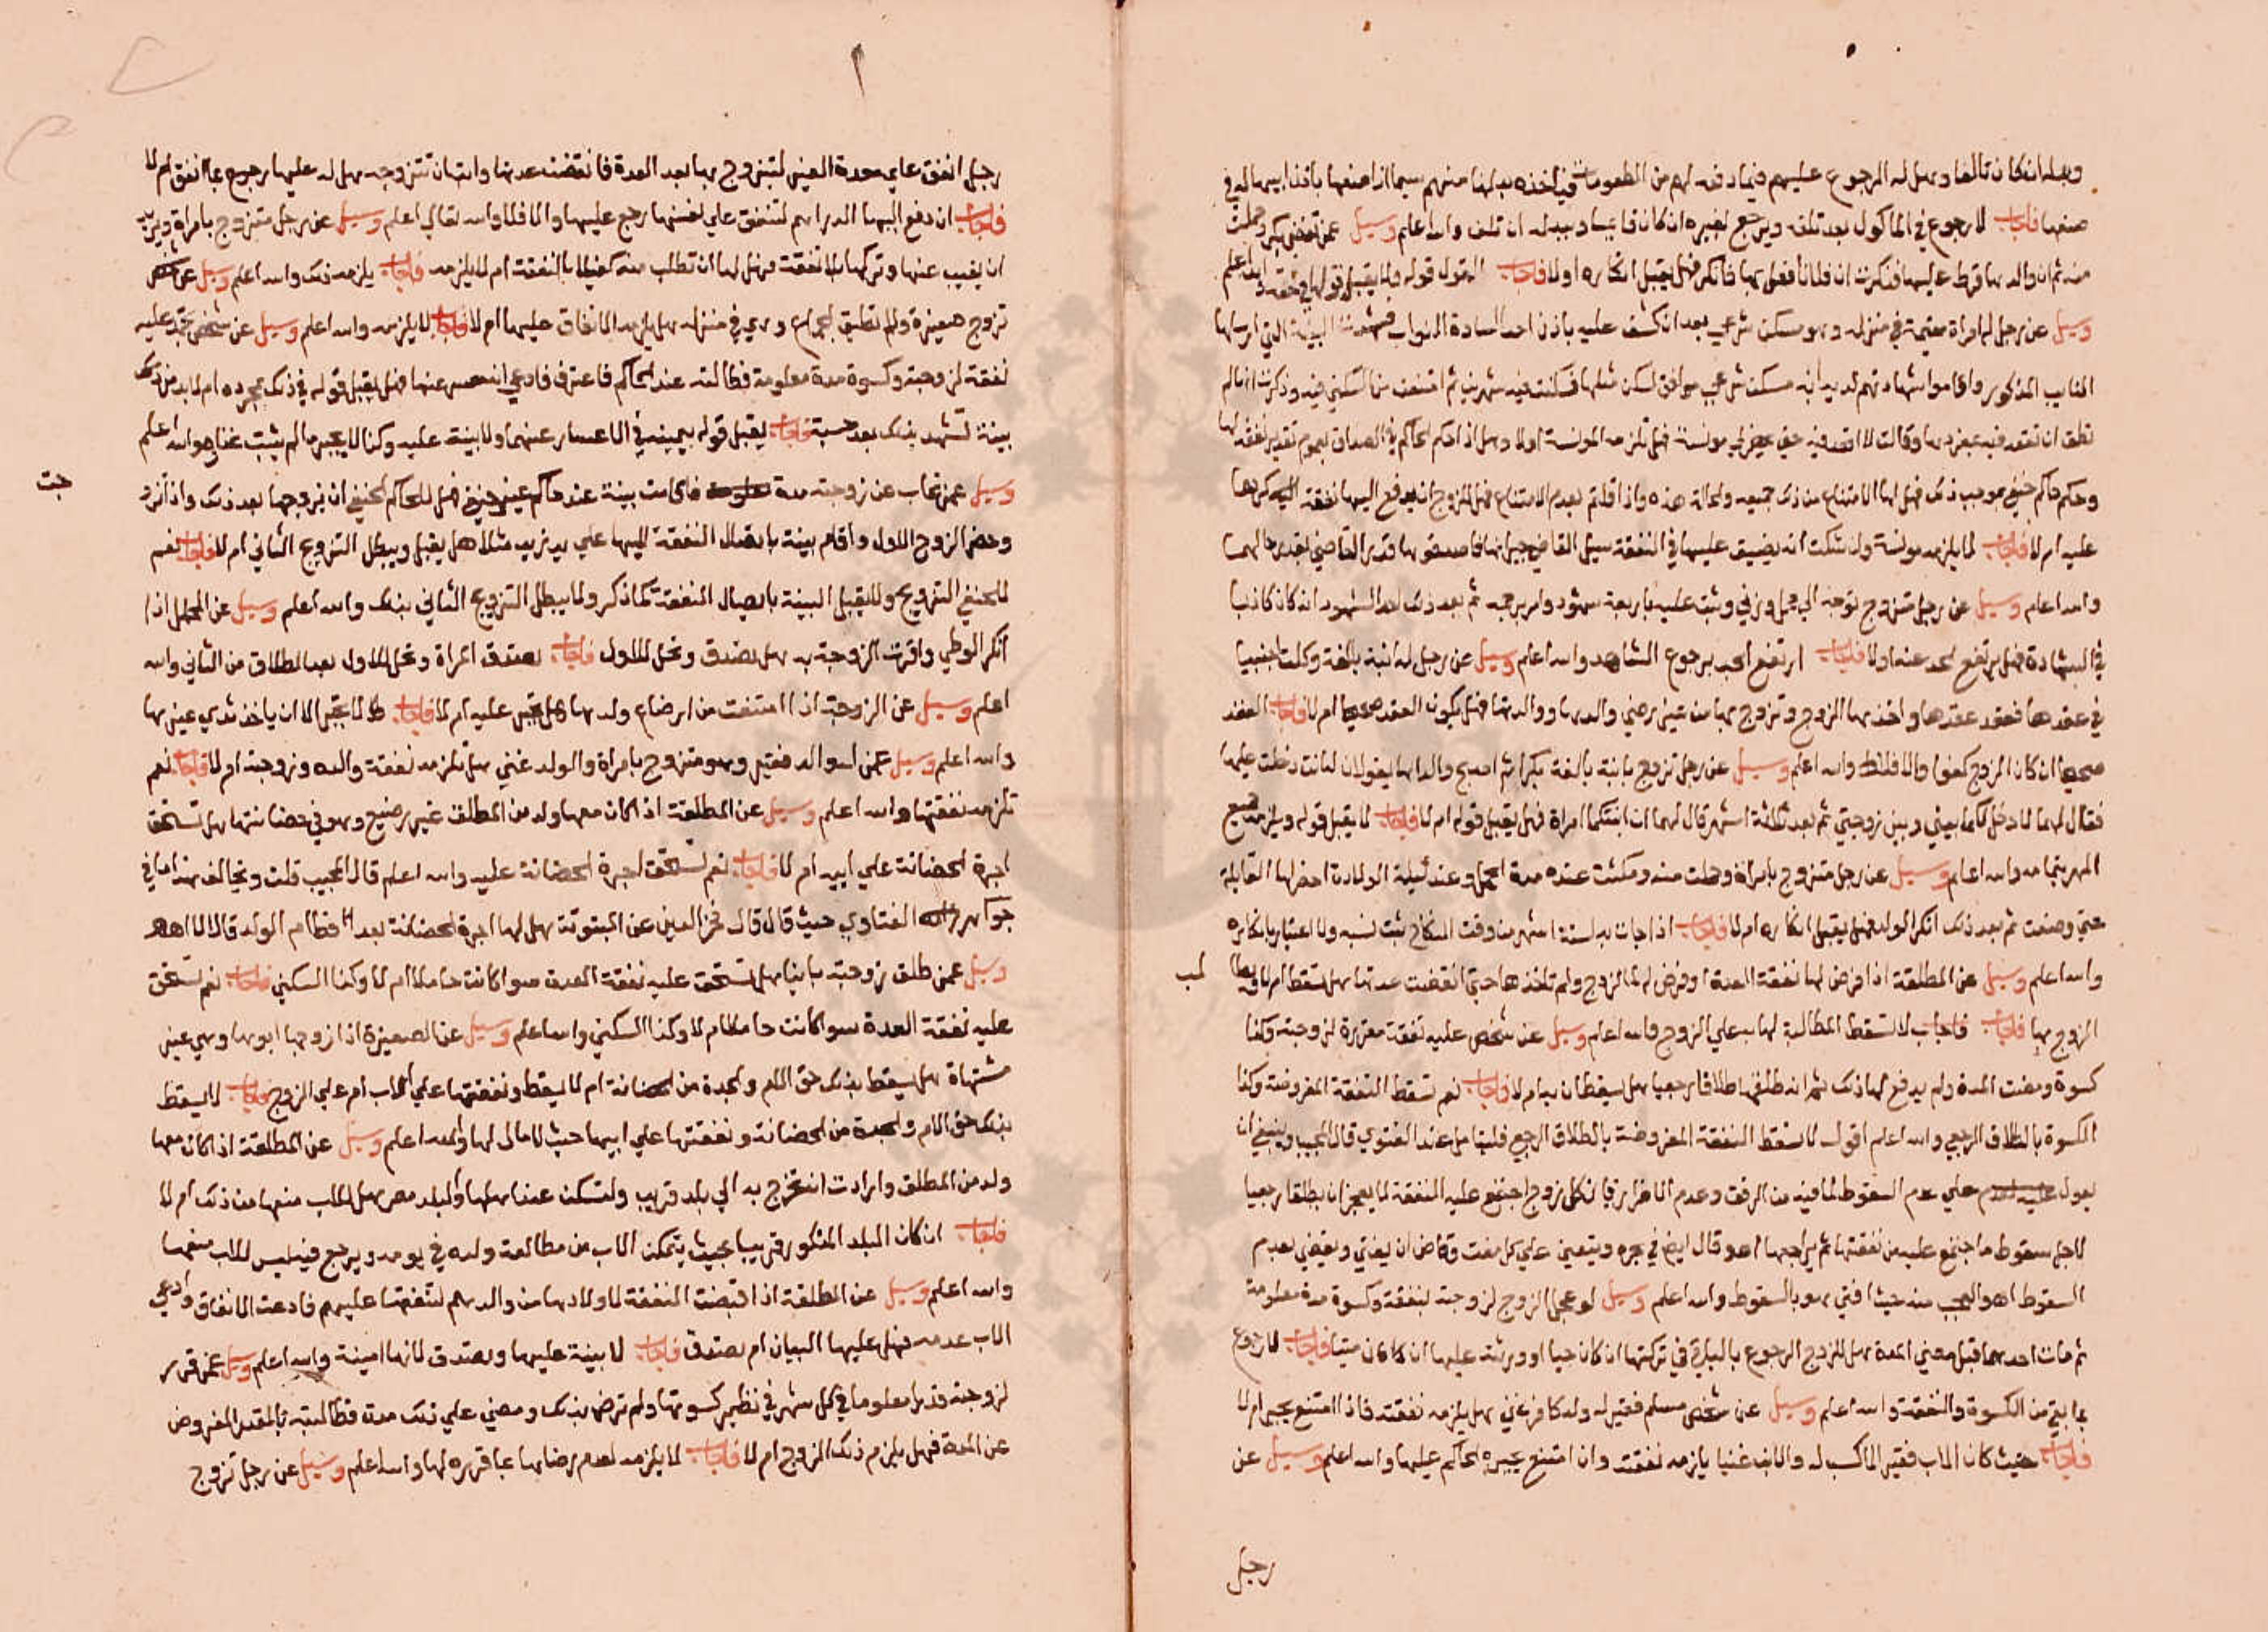 وبدله ان كان تالفا وهل له الرجوع عليهم فيما دفعه لهم من المطعومات فياخذ بدلها منهم سيما اذا صنعها باذن ابيها له في
صنعها فاجاب لا رجوع في الماكول بعد تلفه ويرجع بغيره ان كان قايما وببدله ان تلف والله اعلم وسيل عمن تفتض بكر وحملت
منه ثم ان والدها قرط عليها فذكرت ان فلانا فعل بها فانكر فهل يقبل انكاره او لا فاجاب القول قوله ولا يقبل قولها في حقه والله اعلم
وسيل عن رجل له امراة مقيمة في منزله وهو مسكن شرعي بعد ان كشف عليه باذن احد السادة النواب فشهدت البينة التي ارسلها
النايب المذكور واقاموا شهادتهم لديه انه مسكن شرعي موافق لسكن مثلها فسكنت فيه شهرين ثم امتنعت من السكني فيه وذكرت انها لم
تطق ان تقعد فيه بمفردها وقالت لا اقعد فيه حتى يحضر لي مونسة فهل تلزمه المونسة او لا وهل اذا حكم الحاكم في الصداق بعموم تقدير نفقه لها
وحكم حاكم حنفي بموجب ذلك فهل لها الامتناع من ذلك جميعه والحالة هذه واذا قلتم بعدم الامتناع فهل للزوج ان يدفع اليها نفقة
عليه ام لا فاجاب لا يلزمه مونسة وان شكت انه يضيق عليها في النفقة سيل القاضي جيرانها فان صدقوها قدر القاضي بقدر حالهما
والله اعلم وسيل عن رجل متزوج توجه الي محل وزني وثبت عليه باربعة شهود وامر برجمه ثم بعد ذلك احد الشهود انه كان كاذبا
في الشهادة فهل يرتفع الحد عنه اولا فاجاب ارتفع الحد برجوع الشاهد والله اعلم وسيل عن رجل له ابنة بالغة وكلت اجنبيا
في عقدها فعقد عقدها واخذها الزوج وتزوج بها من غير رضي والدها ووالدتها فهل يكون العقد صحيحا ام لا فاجاب العقد
صحيحا ان كان الزوج كفوا والا فلا والله اعلم وسيل عن رجل تزوج بابنة بالغة بكرا ثم اصبح والداها يقولان له انت دخلت عليها
فقال لهما لا دخل لكما بيني وبين زوجتي ثم بعد ثلاثة اشهر قال لهما ان ابنتكما امراة فهل يقبل قوله ام لا فاجاب لا يقبل قوله ويلزمه جميع
المهر بتمامه والله اعلم وسيل عن رجل متزوج بامراة وحملت منه ومكثت عنده مدة الحمل وعند ليلة الولادة احضر لها القابلة
حتي وضعت ثم بعد ذلك انكر الولد فهل يقبل انكاره ام لا فاجاب اذا جات به لستة اشهر من وقت النكاح ثبت نسبه ولا اعتبار بانكاره
والله اعلم وسيل عن المطلقة اذا فرض لها نفقة العدة او فرض لها الزوج ولم تاخذها حتى انقضت عدتها هل تسقط ام لا
الزوج بها فاجاب لا تسقط المطالبة لها به علي الزوج والله اعلم وسيل عن شخص عليه نفقة مقررة لزوجته وكذا
كسوة ومضت المدة ولم يدفع لها ذلك ثم انه طلقها طلاقا رجعيا هل يسقطان به ام لا فاجاب نعم تسقط النفقة المفروضة وكذا
الكسوة بالطلاق الرجعي والله اعلم اقول لا تسقط النفقة المفروضة بالطلاق الرجعي فليتامل عند الفتوي قال المجيب وينبغي ان
يعول علي عدم السقوط لما فيه من الرفق وعدم الاضرار فان كل زوج اجتمع عليه النفقة لا يعجز ان يطلقها رجعيا
لاجل سقوط ما اجتمع عليه من نفقتها ثم يراجعها اهو قال ايضا في بحره ويتعين علي كل مفت وقاض ان يفتي ويقضي بعدم
السقوط اهو العجب منه حيث افتي هو بالسقوط والله اعلم وسيل لو عجل الزوج لزوجته بنفقة وكسوة مدة معلومة
ثم مات احدهما قبل مضي المدة هل للزوج الرجوع بالباقي في تركتها ان كان حيا او ورثته عليها ان كان ميتا فاجاب لا رجوع
بما بقي من الكسوة والنفقة والله اعلم وسيل عن شخص مسلم فقير له ولد كافر غني هل يلزمه نفقته فاذا امتنع يجبر ام لا
فاجاب حيث كان الاب فقيرا لا كسب له والابن غنيا يلزمه نفقته وان امتنع يجبره الحاكم عليها والله اعلم وسيل عن
رجل
رجل انفق علي معتدة الغير ليتزوج بها بعد العدة فانقضت عدتها وابت ان تتزوجه هل له عليها رجوع بما انفق ام لا
فاجاب ان دفع اليها الدراهم لتنفق علي نفسها رجع عليها والا فلا والله تعالي اعلم وسيل عن رجل متزوج بامراة ويريد
ان يغيب عنها وتركها بلا نفقة فهل لها ان تطلب منه كفيلا بالنفقة ام لا يلزمه فاجاب يلزمه ذلك والله اعلم وسيل عن شخص
تزوج صغيرة ولم تطيق الجماع وهي في منزله هل يلزمه الانفاق عليها ام لا فاجاب لا يلزمه والله اعلم وسيل عن شخص تجمد عليه
نفقة لزوجته وكسوة مدة معلومة فطالبته عند الحاكم فاعترف فادعي انه معسر عنها فهل يقبل قوله في ذلك بمجرده ام لابد من ذلك
بينة تشهد بذلك بعد حبسه فاجاب يقبل قوله بيمينه في الاعسار عنهما ولا بينة عليه وكذا لا يجبر ما لم يثبت غناه والله اعلم
وسيل عمن غاب عن زوجته مدة فاقامت بينة عند حاكم غير حنفي فهل للحاكم الحنفي ان يزوجها بعد ذلك واذا زوج
وحضر الزوج الاول واقام بينة بايصال النفقة اليها علي يد زيد مثلا هل يقبل ويبطل التزويج الثاني ام لا فاجاب نعم
للحنفي التزويج ولا يقبل البينة بايصال النفقة كما ذكر ولا يبطل التزويج الثاني بذلك والله اعلم وسيل عن المحلل اذا
انكر الوطي واقرت الزوجة به هل تصدق وتحل للاول فاجاب تصدق المراة وتحل للاول بعد الطلاق من الثاني والله
اعلم وسيل عن الزوجة اذا امتنعت من ارضاع ولدها هل تجبر عليه ام لا فاجاب لا تجبر الا ان ياخذ ثدي غيرها
والله اعلم وسيل عمن له والد فقير وهو متزوج بامراة والولد غني هل تلزمه نفقة والده وزوجته ام لا فاجاب نعم
تلزمه نفقتهما والله اعلم وسيل عن المطلقة اذا كان معها ولد من المطلق غير رضيع وهو في حضانتها هل تستحق
اجرة الحضانة علي ابيه ام لا فاجاب نعم تستحق اجرة الحضانة عليه والله اعلم قال المجيب قلت ويخالف هذا ما في
جواهر الفتاوي حيث قال قال فخر الدين عن المبتوتة هل لها اجرة الحضانة بعد فطام الولد قال لا اهو
وسيل عمن طلق زوجته باينا هل تستحق عليه نفقة العدة سوا كانت حاملا ام لا وكذا السكني فاجاب نعم تستحق
عليه نفقة العدة سوا كانت حاملا ام لا وكذا السكني والله اعلم وسيل عن الصغيرة اذا زوجها ابوها وهي غير
مشتهاة هل يسقط بذلك حق الام والجدة من الحضانة ام لا يسقط ونفقتها علي الاب ام علي الزوج فاجاب لا يسقط
بذلك حق الام والجدة من الحضانة ونفقتها علي ابيها حيث لا مال لها والله اعلم وسيل عن المطلقة اذا كان معها
ولد من المطلق وارادت ان تخرج به الي بلد قريب ولتسكن عند اهلها والبلد مصر هل للاب منعها من ذلك ام لا
فاجاب ان كان البلد المذكور قريبا بحيث يتمكن الاب من مطالعة ولده في يومه ويرجع فيه ليس للاب منعها
والله اعلم وسيل عن المطلقة اذا قبضت النفقة لاولادها من والدهم لتنفقها عليهم فادعت الانفاق وادعي
الاب عدمه فهل عليها البيان ام تصدق فاجاب لا بينة عليها وتصدق لانها امينة والله اعلم وسيل عمن قرر
لزوجته قدرا معلوما في كل شهر في نظير كسوتها ولم ترض بذلك ومضي علي ذلك مدة فطالبته بالقدر المفروض
عن المدة فهل يلزم ذلك الزوج ام لا فاجاب لا يلزمه لعدم رضاها بما قرره لها والله اعلم وسيل عن رجل تزوج